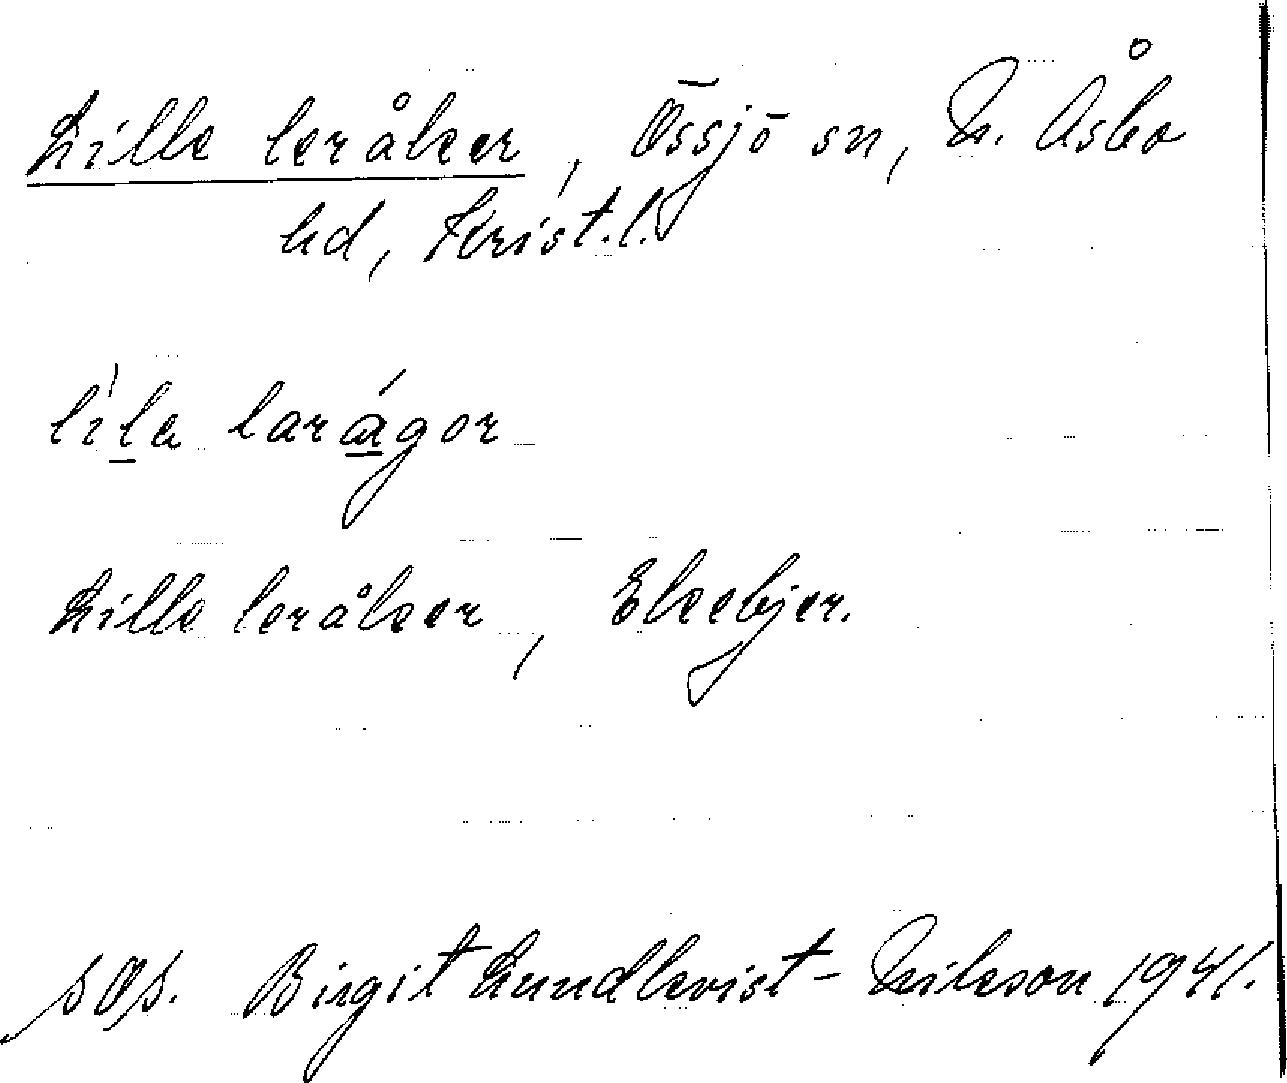 Lille leråker, Össjö sn, N. Åsbo
hd, Krist. l.
lila larágor
Lille leråker, Ekebjer.
sOs. Birgit Lundkvist-Nilsson 1941.